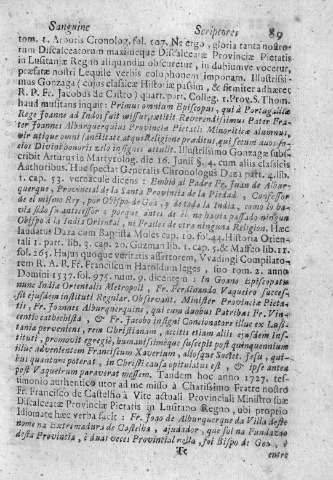 Sanguine Scriptores 89
tom. 1. Aporis Cronolog. fol. 507. Ne ergo, gloria tanta nostro-
rum Discalceatorum maximeque Discalceatæ Provinciæ Pietatis
in Lusitaniæ Regno aliquandiu obscuretur, in dubiumve vocetur,
præfatæ nostri Lequile verbis colophonem imponam. Illustrissi-
mus Gonzaga (cujus classicæ Historiæ passim, & firmiter adhæret
R. P. Fr. Jacobus de Castro) quart. part. Colleg. 1. Prov. S. Thom.
haud mussitans inquit: Primus omnium Episcopus, qui à Portugalliæ
Rege Joanne ad Indos fuit missus, extitit Reverendissimus Pater Fra-
ter Joannes Alburquerquius Provinciæ Pietatis Minoriticæ alumnus,
vir utique omni sanctitate atque Religione præditus, qui fecum
Divini honoris zelo insignes attulit. Illustrissimo Gonzagæ subscribit
Arturus in Martyrolog. die 16. Junii §. 4. cum aliis classicis
Authoribus. Huc spectat Generalis Chronologus Daza part. 4. lib.
1. cap. 53. vernaculè dicens: Embiò al Padre Fr. Juan de Albur-
querque, Provincial de la Santa Provincia de la Piedad, Confessor
de el mismo Rey, por Obispo de Goa, y de toda la India, como lo ha-
via sido su antecessor; porque antes de èl no havia passado ningun
Obispo à la India Oriental, ni Frailes de otra ninguna Religion. Hæc
laudatus Daza cum Baptista Moles cap. 10. fol. 44. Historia Orien-
tali 1. part. lib. 3. cap. 20. Guzman lib. 1. cap. 5. & Maffeo lib. 12.
fol. 265. Hujus quoque veritatis assertorem, Vvadingi Compilato-
rem R. A. P. Fr. Franciscum Haroldum lagos, suo tom. 2. anno
Domini 1537. fol. 975. num. 9. dicentem: In Goano Episcopatu
nunc India Orientalis Metropoli, Fr. Ferdinando Vaquero succes-
sit ejusdem instituti Regular. Observant. Minister Provinciæ Pieta-
tis, Fr. Joannes Alburquerquius, qui cum duobus Patribus Fr. Vin-
centio cathechista, & Fr. Jacobo insigni Concionatore illuc ex Lusi-
tania perveniens, rem Christianam, accitis etiam aliis ejusdem insti-
tuti, promovit egregiè, humanissimèque suscepit post quinquennium
illuc adventantem Franciscum Xaverium, aliosque Societ. Jesu, qui-
bus quantùm poterat, in Christi causa opitulatus est, & ipse antea
post Vaquetrum paraverat messem. Tandem hoc anno 1727. tes-
timonio authentico utor ad me misso à Charissimo Fratre nostro
Fr. Francisco de Castello à Vite actuali Provinciali Ministro suæ
Discalceatæ Provinciæ Pietatis in Lusitano Regno, ubi proprio
Idiomate hæc verba facit: Fr. Joao de Alburquerque da Villa deste
nome na Extremadura de Castelha, ajudador, que foi na Fundação
desta Provincia, è duas veces Provincial nella, foi Bispo de Goa, è
Tt entre